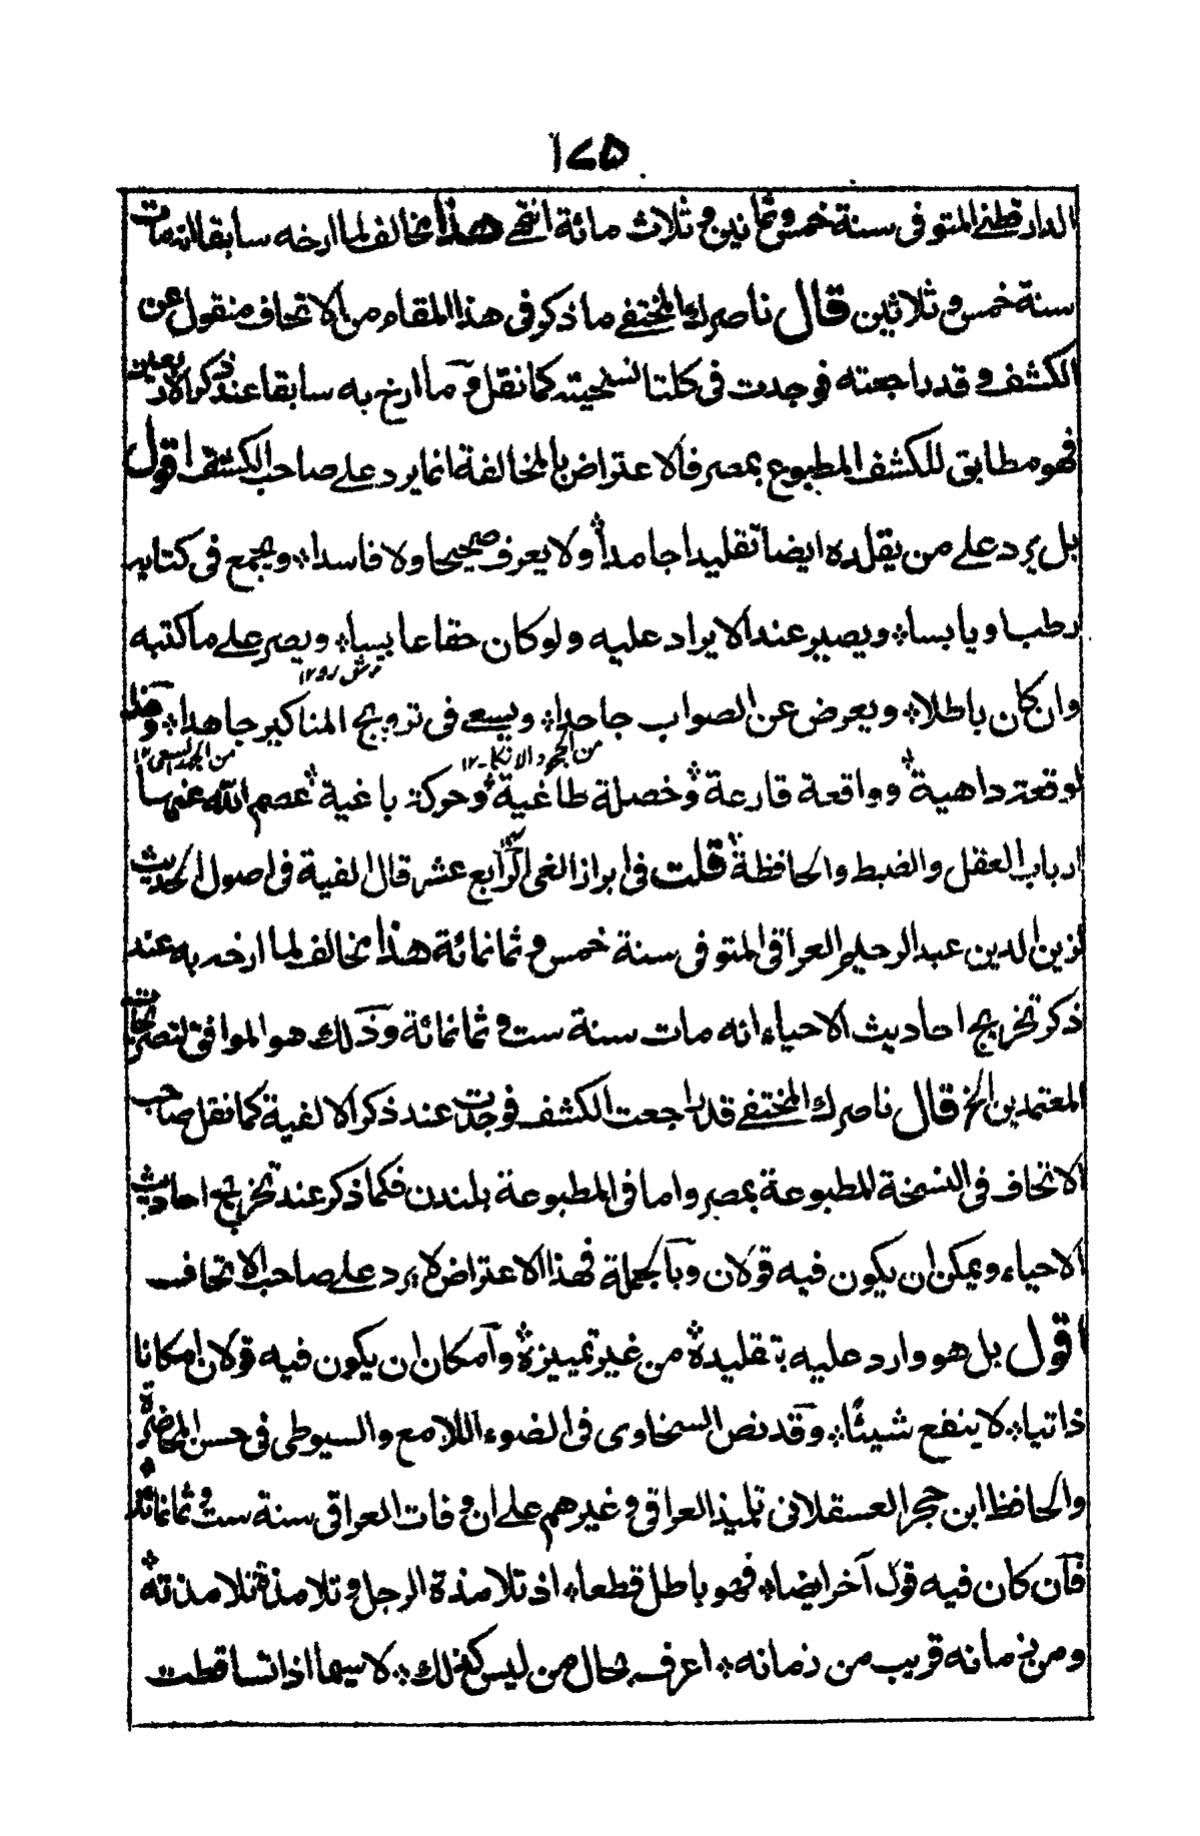 ١٧٥
الدارقطنے المتوفی سنة خمس وثمانین وثلاث مائة انتھے ھذا مخالف لما ارخه سابقا انه مات
سنة خمس وثلاثین قال ناصرك المختفے ما ذکر فی ھذا المقام من الاتحاف منقول عن
الکشف وقد راجعته فوجدت فی کلتا نسختیه کما نقل وما ارخ به سابقا عند ذکر الاربعین
فھو مطابق للکشف المطبوع بمصر فالاعتراض بالمخالفة انما یرد علے صاحب الکشف اقول
بل یرد علے من یقلده ایضا تقلیدا جامدا ولا یعرف صحیحا ولا فاسدا ویجمع فی کتابه
رطبا ویابسا ویصیر عند الایراد علیه ولو کان حقا عابسا ویصر علے ما کتبه
ترش رو ١٢
وان کان باطلا ویعرض عن الصواب جاحدا ویسعے فی ترویج المناکیر جاھدا وھذه
من الجحود الانکار ١٢
من الجھد السعی ١٢
لوقعة داھیة وواقعة قارعة وخصلة طاغیة وحرکة باغیة عصم الله عنھا
ارباب العقل والضبط والحافظة قلت فی ابراز الغی الرابع عشر قال الفیة فی اصول الحدیث
لزین الدین عبد الرحیم العراقی المتوفی سنة خمس وثمانمائة ھذا مخالف لما ارخه به عند
ذکر تخریج احادیث الاحیاء انه مات سنة ست وثمانمائة وذلك ھو الموافق لتصریحات
المعتمدین الخ قال ناصرك المختفے قد راجعت الکشف فوجدت عند ذکر الالفیة کما نقل صاحب
الاتحاف فی النسخة المطبوعة بمصر واما فی المطبوعة بلندن فکما ذکر عند تخریج احادیث
الاحیاء ویمکن ان یکون فیه قولان وبالجملة فھذا الاعتراض لا یرد علے صاحب الاتحاف
اقول بل ھو وارد علیه بتقلیده من غیر تمییزه وامکان ان یکون فیه قولان امکانا
ذاتیا لا ینفع شیئا وقد نص السخاوی فی الضوء اللامع والسیوطی فی حسن المحاضرة
والحافظ ابن حجر العسقلانی تلمیذ العراقی وغیرھم علے ان وفات العراقی سنة ست وثمانمائة
فان کان فیه قول آخر ایضا فھو باطل قطعا اذ تلامذة الرجل وتلامذة تلامذته
ومن زمانه قریب من زمانه اعرف بحال من لیس کذلك لا سیما اذا تساقطت